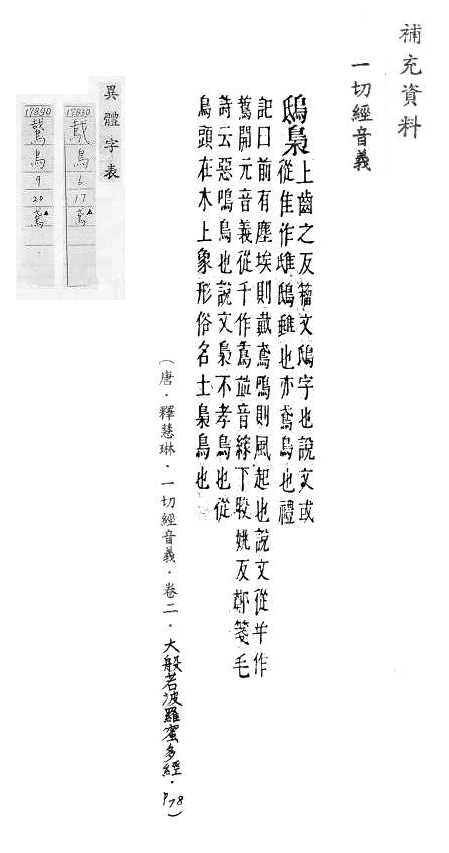 補充資料
一切經音義
鴟梟上齒之反籀文鴟字也說文或
從隹作鴟鴟雖也亦鳶鳥也禮
記曰前有塵埃則戴鳶鳴則風起也說文從屰作
鳶開元音義從千作鳶並音緣下皎姚反鄭箋毛
詩云惡鳴鳥也說文梟不孝鳥也從
鳥頭在木上象形俗名土梟鳥也
(唐．釋慧琳．一切經音義．卷二．大般若波羅蜜多經．P78)
異體字表
17830
鳥
6
17
鳶
17840
鳥
9
20
鳶